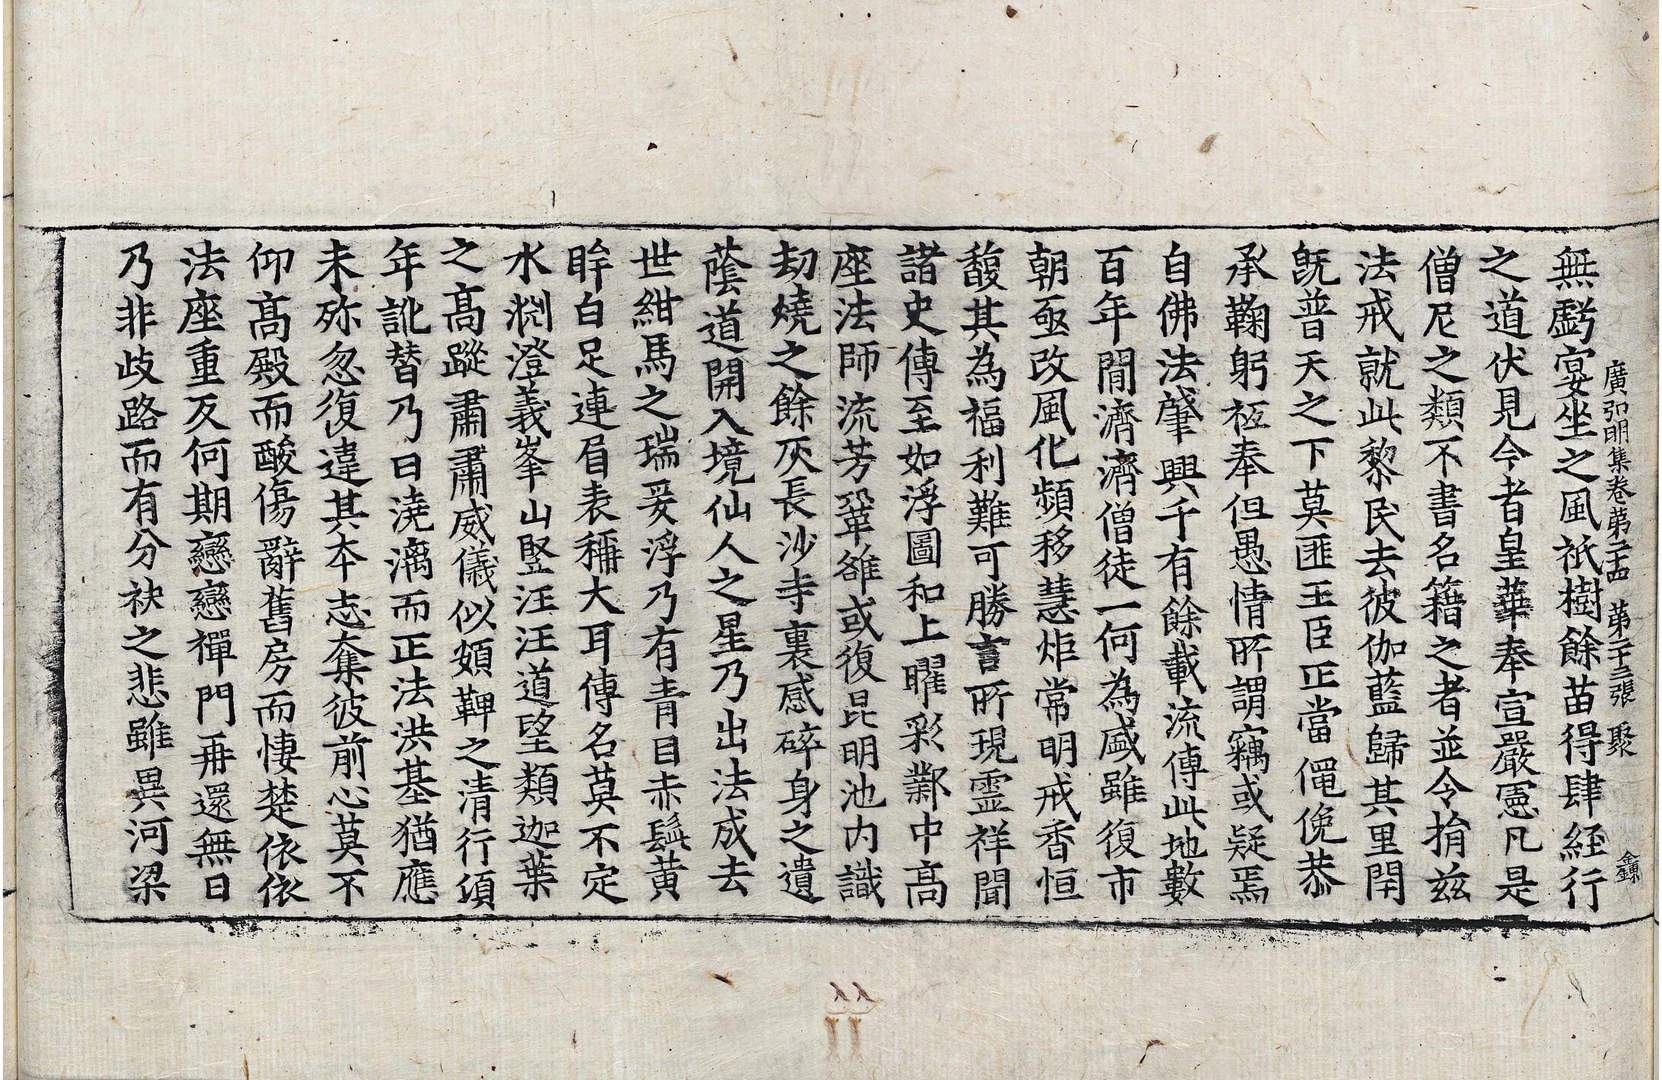 廣弘明集卷第二十四　第二十三張　聚
無虧宴坐之風祇樹餘苗得肆經行
之道伏見今者皇華奉宣嚴憲凡是
僧尼之類不書名籍之者並令捐兹
法戒就此黎民去彼伽藍歸其里閈
旣普天之下莫匪王臣正當僶俛恭
承鞠躬祗奉但愚情所謂竊或疑焉
自佛法肇興千有餘載流傳此地數
百年間濟濟僧徒一何為盛雖復市
朝亟改風化頻移慧炬常明戒香恒
馥其為福利難可勝言所現靈祥聞
諸史傳至如浮圖和上曜彩鄴中高
座法師流芳鞏雒或復昆明池内識
劫燒之餘灰長沙寺裏感碎身之遺
蔭道開入境仙人之星乃出法成去
世紺馬之瑞爰浮乃有青目赤髭黄
眸白足連眉表稱大耳傳名莫不定
水淵澄義峯山竪汪汪道望類迦葉
之高蹤肅肅威儀似頞鞞之清行須
年訛替乃曰澆漓而正法洪基猶應
未殄忽復違其本志奪彼前心莫不
仰高殿而酸傷辭舊房而悽楚依依
法座重反何期戀戀禪門再還無日
乃非歧路而有分袂之悲雖異河梁